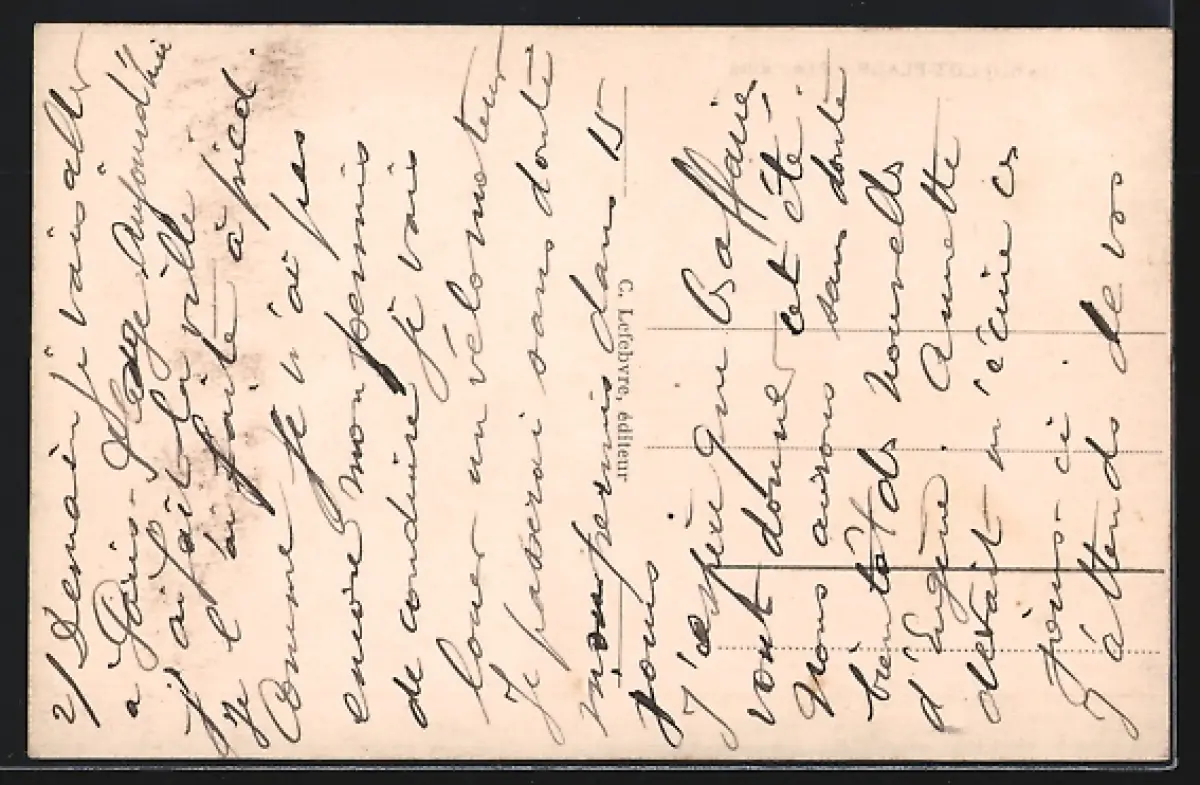 2/ Demain je vais aller
a Paris-Plage Aujourd'hui
j'ai fait la ville
Je l'ai faite à pied.
Comme je n'ai pas
encore mon permis
de conduire je vais
louer un vélomoteur
Je passerai sans doute
mon permis dans 15
jours
J'espère que
vont donner cet été.
Nous aurons sans doute
bientôt ds nouvels
d'Eugène. Annette
devait m'écrire ces
jours-ci.
J'attends de vos
C. Lefebvre, éditeur